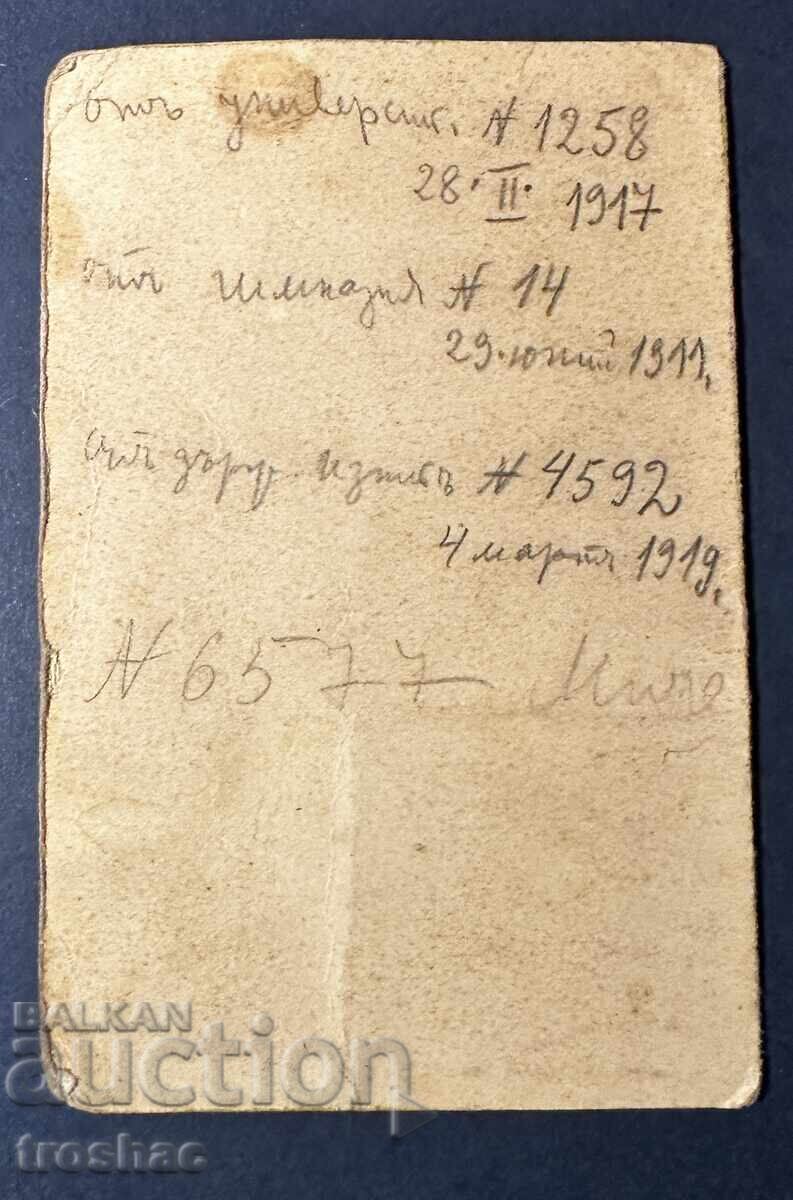 отъ университ. N 1258
28. II. 1917
отъ гимназия N 14
29. юний 1911.
отъ държ. изпитъ N 4592
4 мартъ 1919.
N 6577
BALKAN
auction
troshac